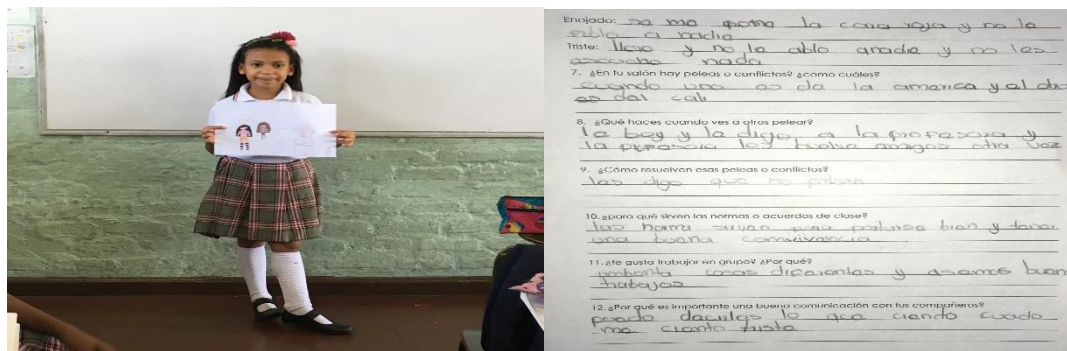 Enojado: se me pone la cara roja y no le
ablo a nadie
Triste: lloro y no le ablo anadie y no les
escucho nada
7. ¿En tu salón hay peleas o conflictos? ¿como cuáles?
cuando uno es de la america y el otro
es del cali
8. ¿Qué haces cuando ves a otros pelear?
le boy y le digo a la profesora y
la profesora les buelve amigos otra vez
9. ¿Cómo resuelven esas peleas o conflictos?
les digo que no
10. ¿para qué sirven las normas o acuerdos de clase?
las norma sirven para portarse bien y tener
una buena
11. ¿te gusta trabajar en grupo? ¿Por qué?
cosas diferentes y asemos buen
trabajos
12. ¿Por qué es importante una buena comunicación con tus compañeros?
puedo decirles lo que ciendo cuado
me ciento triste